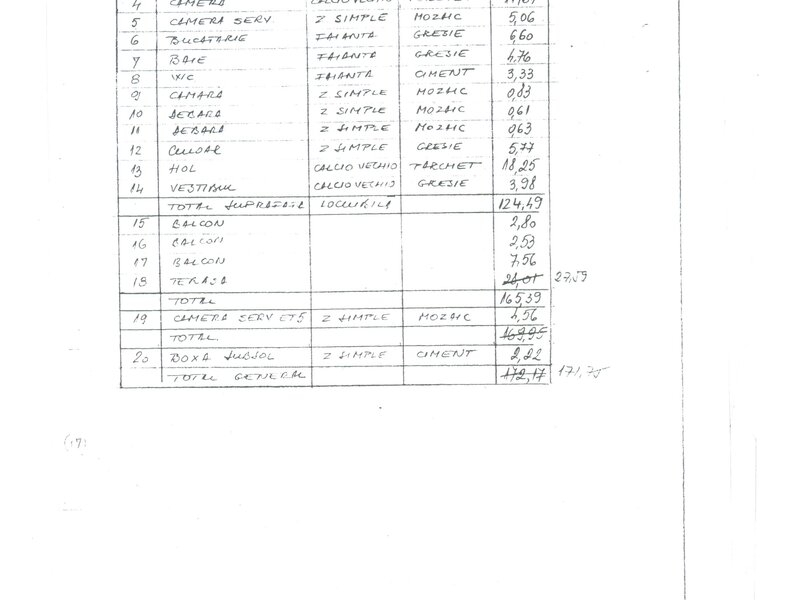 4 CAMERA
5 CAMERA SERV Z SIMPLE MOZAIC 5,06
6 BUCATARIE FAIANTA GRESIE 6,60
7 BAIE FAIANTA GRESIE 4,76
8 WC FAIANTA CIMENT 3,33
9 CAMARA Z SIMPLE MOZAIC 0,83
10 DEBARA Z SIMPLE MOZAIC 0,61
11 DEBARA Z SIMPLE MOZAIC 0,63
12 CULOAR Z SIMPLE GRESIE 5,77
13 HOL CALCIO VECHIO PARCHET 18,25
14 VESTIBUL CALCIO VECHIO GRESIE 3,98
TOTAL SUPRAFATA LOCUIBILA 124,49
15 BALCON 2,80
16 BALCON 2,53
17 BALCON 7,56
18 TERASA 28,01 27,59
TOTAL 165,39
19 CAMERA SERV ET5 Z SIMPLE MOZAIC 4,56
TOTAL 169,95
20 BOXA SUBSOL Z SIMPLE CIMENT 2,22
TOTAL GENERAL 172,17 171,75
(17)